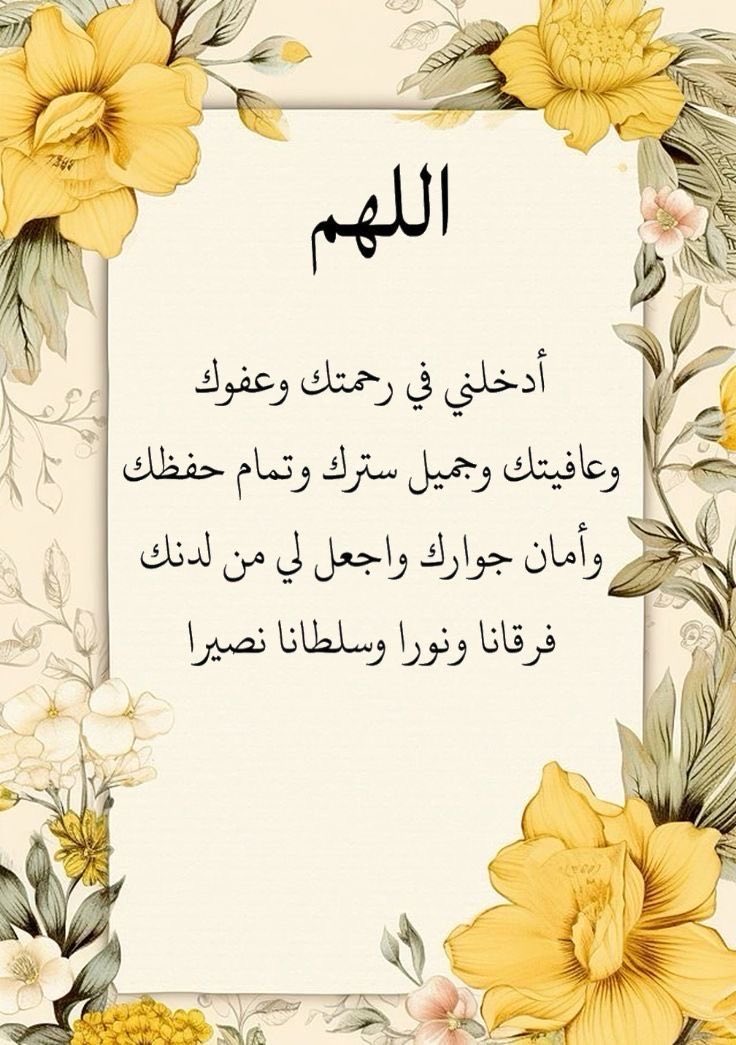 اللهم
أدخلني في رحمتك وعفوك
وعافيتك وجميل سترك وتمام حفظك
وأمان جوارك واجعل لي من لدنك
فرقانا ونورا وسلطانا نصيرا